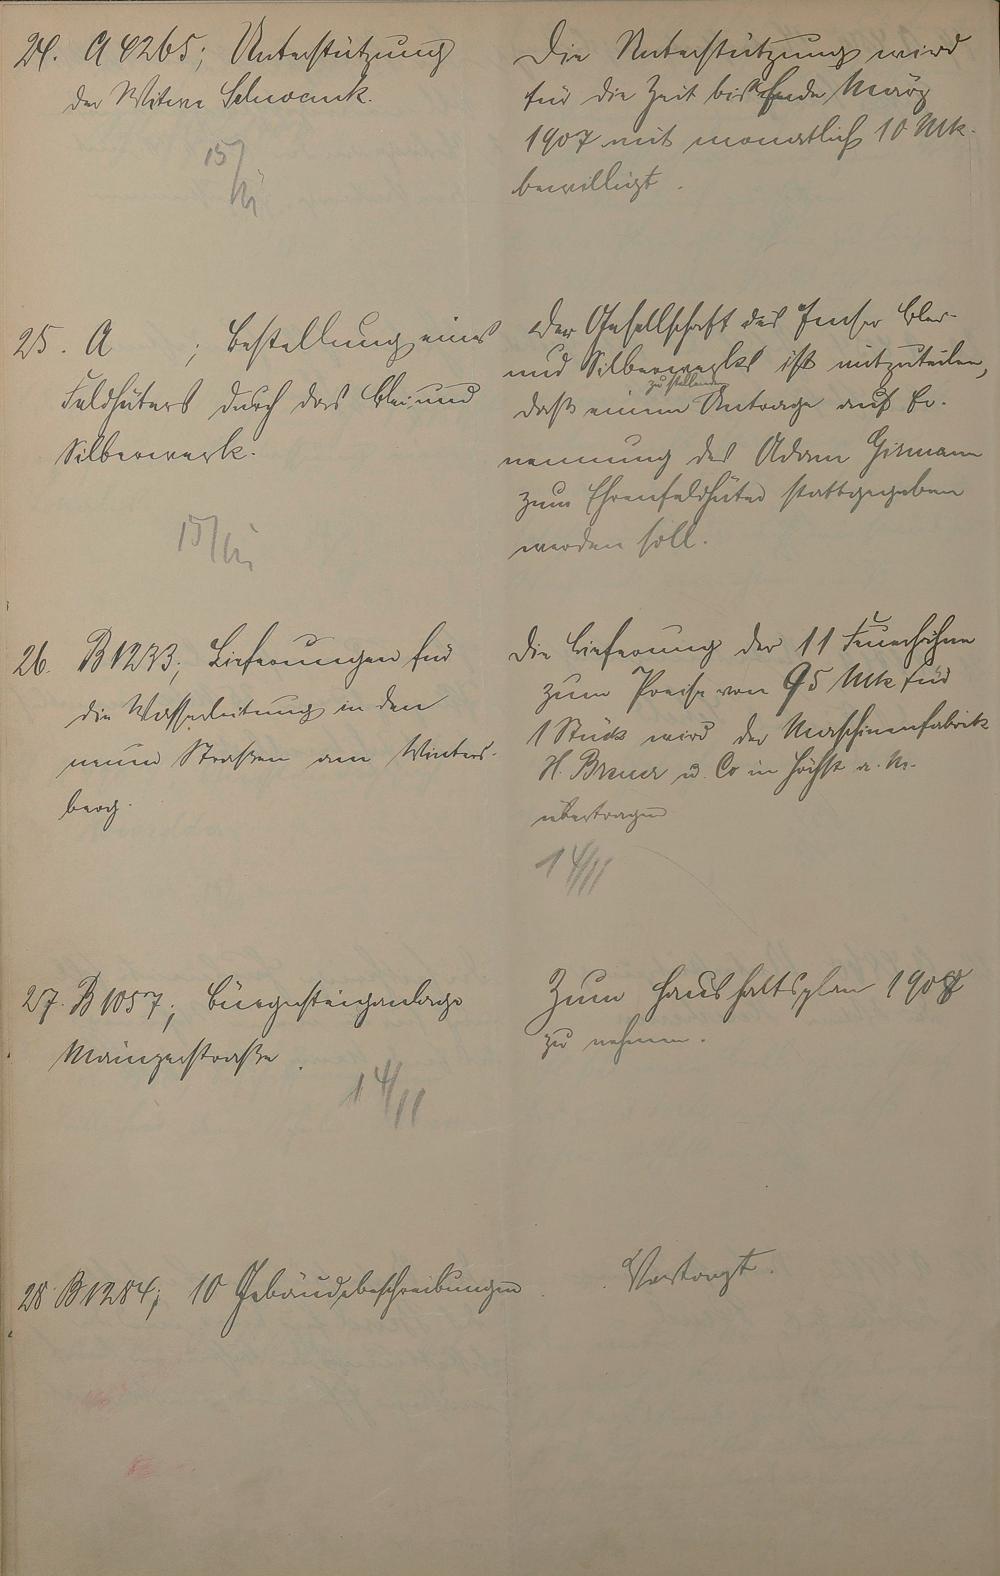 24. A 4265; Unterstützung
der Witwe
15/
Die Unterstützung wird
für die Zeit bis Ende März
1907 mit monatlich 10 Mk.
bewilligt.
25. A ; Bestellung eines
Feldhüters durch das Blei- und
Silberwerk.
15/
Der Gesellschaft des Emser Blei-
und Silberwerks ist mitzuteilen,
zu stellenden
daß einem Antrage auf Er-
nennung des Adam
zum Ehrenfeldhüter stattgegeben
werden soll.
26. B 1233; Lieferungen für
die Wasserleitung in den
neuen Straßen am Winters-
berg.
Die Lieferung der 11
zum Preise von 95 Mk für
1 Stück wird der Maschinenfabrik
H. Breuer u. Co in Höchst a. M.
übertragen
14/11
27. B 1057; Bürgersteiganlage
Mainzerstraße.
14/11
Zum Haushaltsplan 1908
zu nehmen.
28 B 1284; 10 Gebäudebeschreibungen
Vertagt.